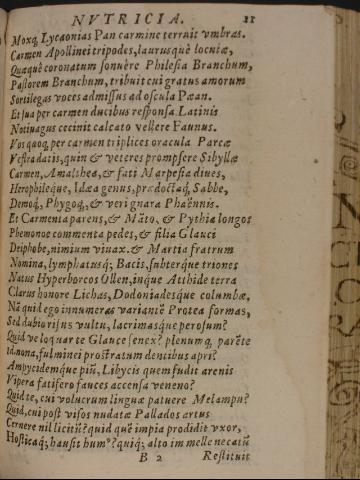 NVTRICIA. 11
Moxq, Lycaonias Pan carmine terruit vmbras.
Carmen Apollinei tripodes, laurusquè locutæ,
Quæquè coronatum sonuêre Philesia Branchum,
Pastorem Branchum, tribuit cui gratus amorum
Sortilegas voces admissus ad oscula Pæan.
Et sua per carmen ducibus responsa Latinis
Noctiuagus cecinit calcato vellere Faunus.
Vos quoq, per carmen triplices oracula Parcæ
Vestra datis, quin & veteres prompsere Sibyllæ
Carmen, Amalthea, & fati Marpesia diues,
Herophileque, Idæa genus, prædoctaq, Sabbe,
Demoq, Phygoq, & veri gnara Phaënnis.
Et Carmenta parens, & Mãto, & Pythia longos
Phemonoe commenta pedes, & filia Glauci
Deiphobe, nimium viuax. & Martia fratrum
Nomina, lymphatusq; Bacis, subterque triones
Natus Hyperboreos Ollen, inque Atthide terra
Clarus honore Lichas, Dodoniadesque columbæ,
Nã quid ego innumeras variantẽ Protea formas,
Sed dubio risus vultu, lacrimasque perosum?
Quid ve loquar te Glauce senex? plenumq, parẽte
Idmona, fulminei prostratum dentibus apri?
Ampycidemque piũ, Libycis quem fudit arenis
Vipera fatifero fauces accensa veneno?
Quid te, cui volucrum linguæ patuere Melampu?
Quid, cui post visos nudatæ Pallados artus
Cernere nil licitũ? quid quẽ impia prodidit vxor,
Hosticaq; hausit humꝰ? quiq; alto im melle necatũ
B 2 Restituit